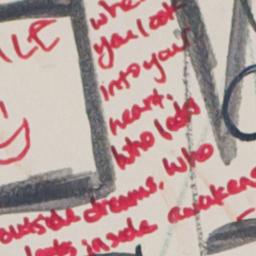 ILE
when
you look
into your
heart.
Who looks
outside dreams. Who
looks inside awakens